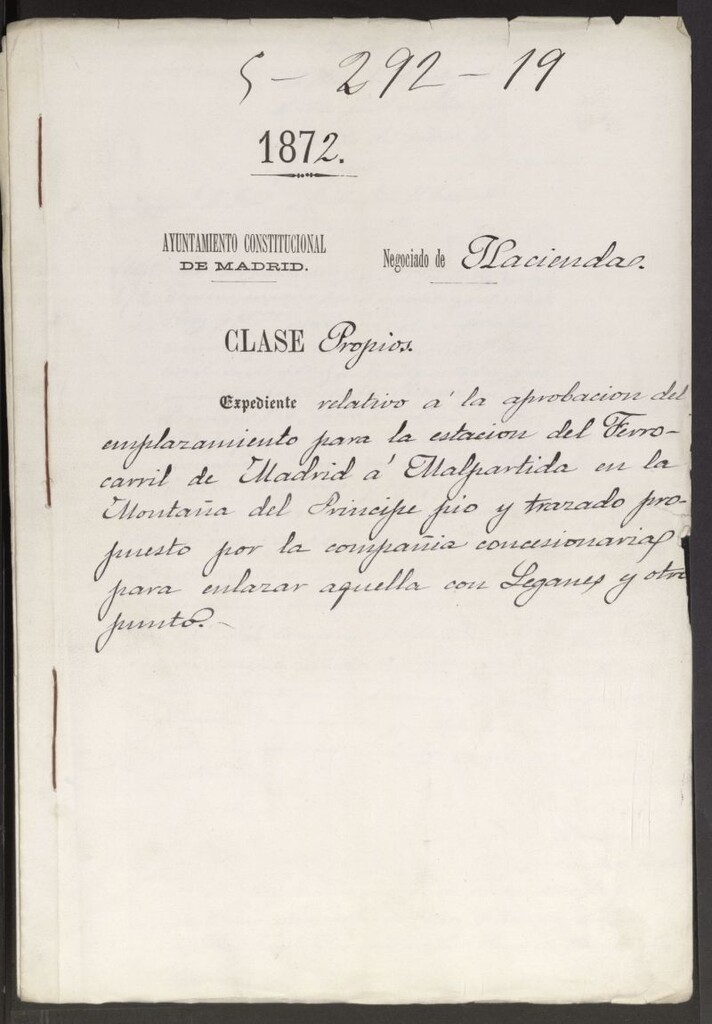 5-292-19
1872.
AYUNTAMIENTO CONSTITUCIONAL
DE MADRID.
Negociado de Hacienda.
CLASE Propios.
Expediente relativo á la aprobacion del
emplazamiento para la estacion del Ferro-
carril de Madrid á Malpartida en la
Montaña del Principe pio y trazado pro-
puesto por la compañia concesionaria
para enlazar aquella con Leganes y otro
punto.-